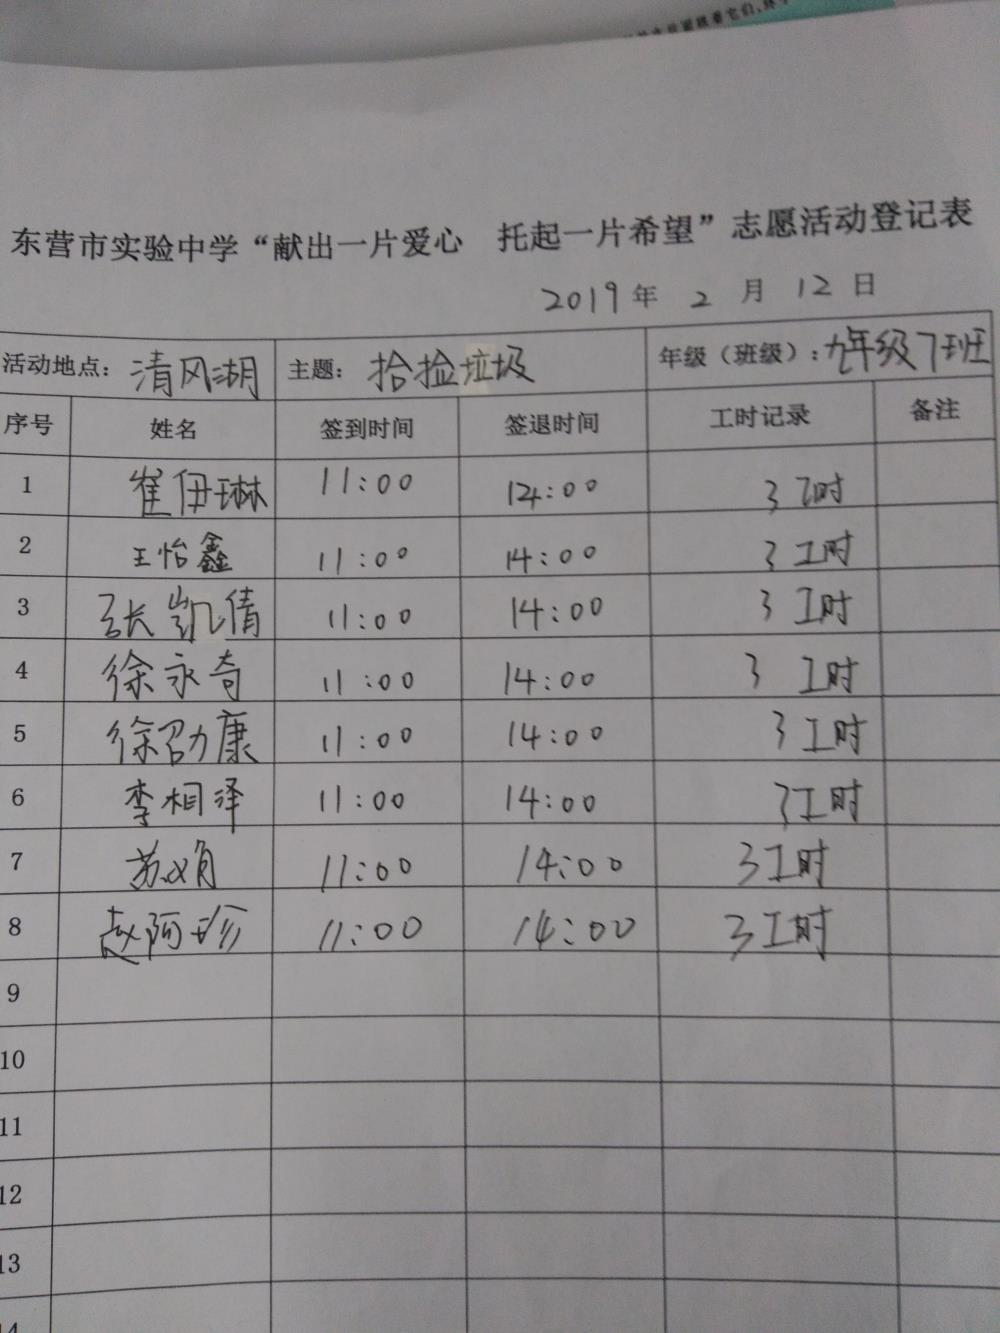 东营市实验中学“献出一片爱心 托起一片希望”志愿活动登记表
2019年 2 月 12 日
活动地点：清风湖 主题：拾捡垃圾 年级（班级）：九年级7班
序号 姓名 签到时间 签退时间 工时记录 备注
1 崔伊琳 11:00 14:00 3工时
2 王怡鑫 11:00 14:00 3工时
3 张凯倩 11:00 14:00 3工时
4 徐永奇 11:00 14:00 3工时
5 徐劭康 11:00 14:00 3工时
6 李相泽 11:00 14:00 3工时
7 苏 11:00 14:00 3工时
8 赵阿珍 11:00 14:00 3工时
9
10
11
12
13
14